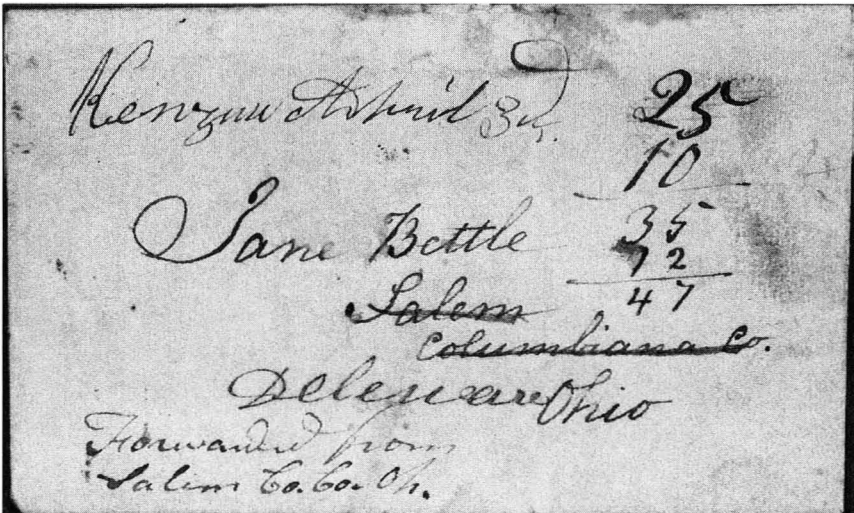 Kenzua April 3d. 25
10
Jane Bettle 35
12
Salem 47
Columbiana Co.
Deleware Ohio
Forwarded from
Salem Co. Co. Oh.